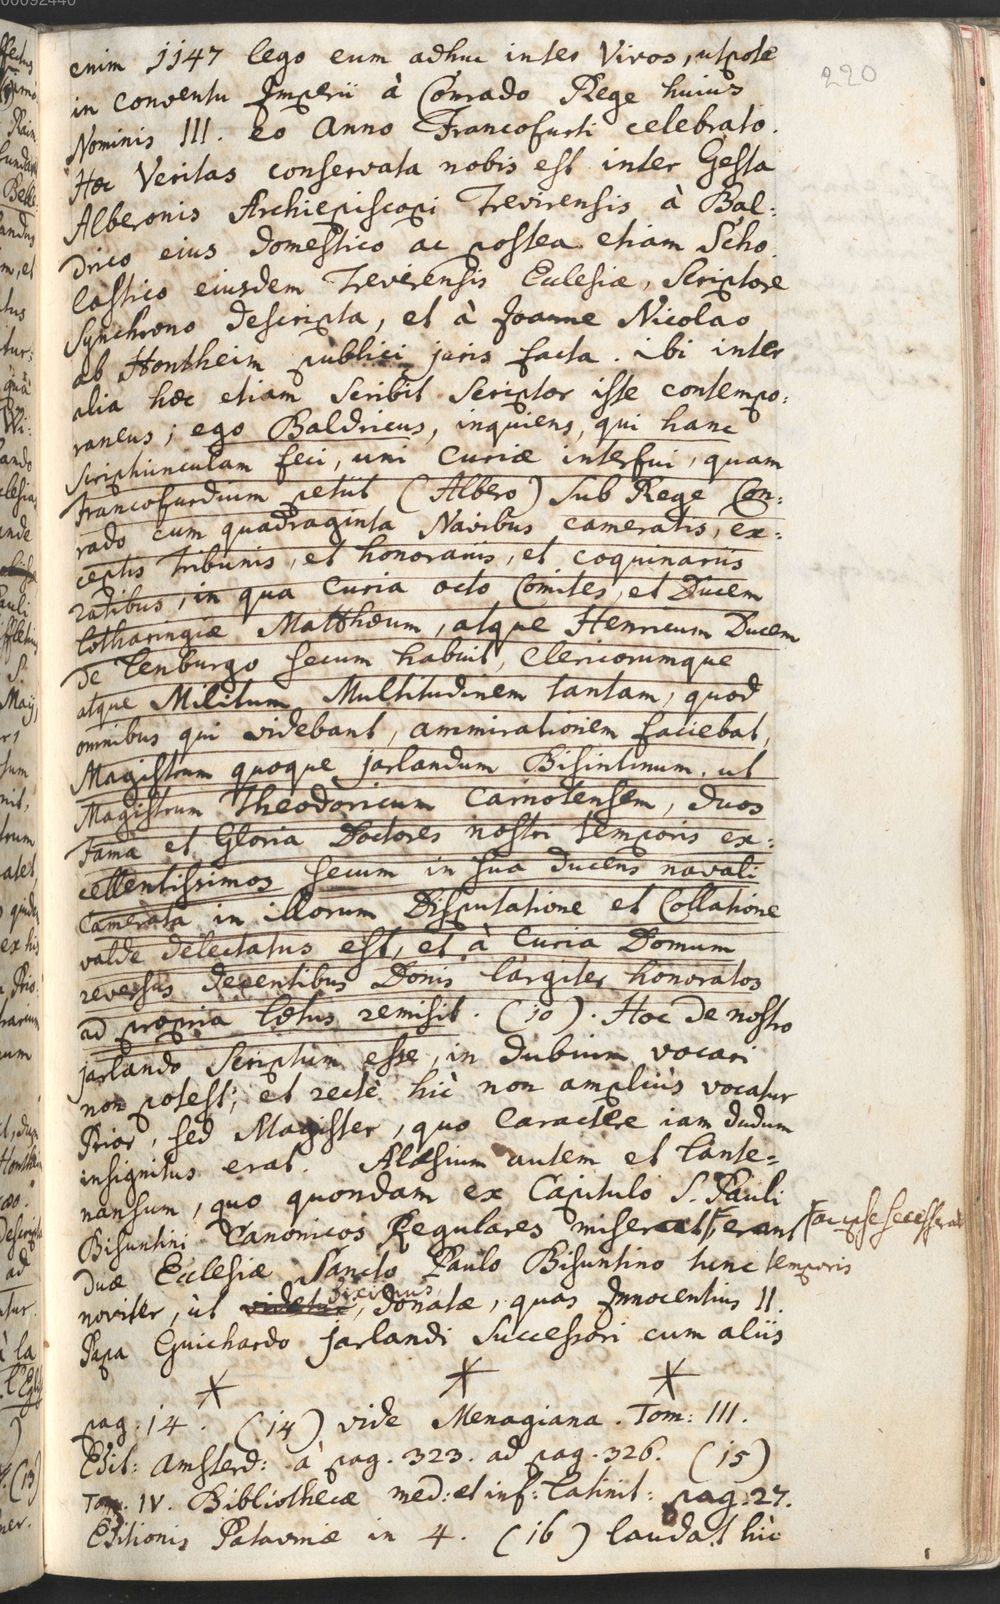 220
enim 1147 lego eum adhuc inter Vivos, utpote
in Conventu Imperii à Conrado Rege huius
Nominis III. eo Anno Francofurti celebrato.
Hæc Veritas conservata nobis est inter Gesta
Alberonis Archiepiscopi Trevirensis à Bal:
drico eius Domestico ac postea etiam Scho
lastico eiusdem Treverensis Eclesiæ, Scriptore
Synchrono descripta, et à Joanne Nicolao
ab Hontheim publici juris facta. ibi inter
alia hæc etiam Scribit Scriptor iste contempo:
raneus; ego Baldricus, inquiens, qui hanc
scriptiunculam feci, uni Curiæ interfui, quam
Francofurdium petiit (Albero) sub Rege Con:
rado cum quadraginta Navibus cameratis, ex:
ceptis tribunis, et honorariis, et coquinariis
ratibus, in qua Curia octo Comites, et Ducem
Lotharingiæ Matthæum, atque Henricum Ducem
de Lenburgo secum habuit, Clericorumque
atque Militum Multitudinem tantam, quod
omnibus qui videbant, ammirationem faciebat,
Magistrum quoque jarlandum Bisintinum, ut
Magistrum Theodoricum Carnotensem, duos
Fama et Gloria Doctores nostri temporis ex:
cellentissimos secum in sua ducens navali
Camerata in illorum Disputatione et Collatione
valde delectatus est, et à Curia Domum
reversus decentibus Donis largiter honoratos
ad propria lætus remisit. (10). Hoc de nostro
jarlando Scriptum esse, in dubium vocari
non potest; et rectè hìc non ampliùs vocatur
Prior, sed Magister, quo Caractere iam dudum
insignitus erat. Alæsium autem et Lante=
nansum, quo quondam ex Capitulo S. Pauli
Bisuntini Canonicos Regulares miserat, erant
duæ Eclesiæ Sancto Paulo Bisuntino hinc temporis
noviter, ùt diximus, donatæ, quas Innocentius II.
Papa Guichardo jarlandi Successori cum aliis
pag. 14. (14) vide Menagiana. Tom: III.
Edit: Amsterd: à pag. 323. ad pag. 326. (15)
Tom. IV. Bibliothecæ med: et inf: Latinit: pag. 27.
Editionis Patavinæ in 4. (16) laudat hìc